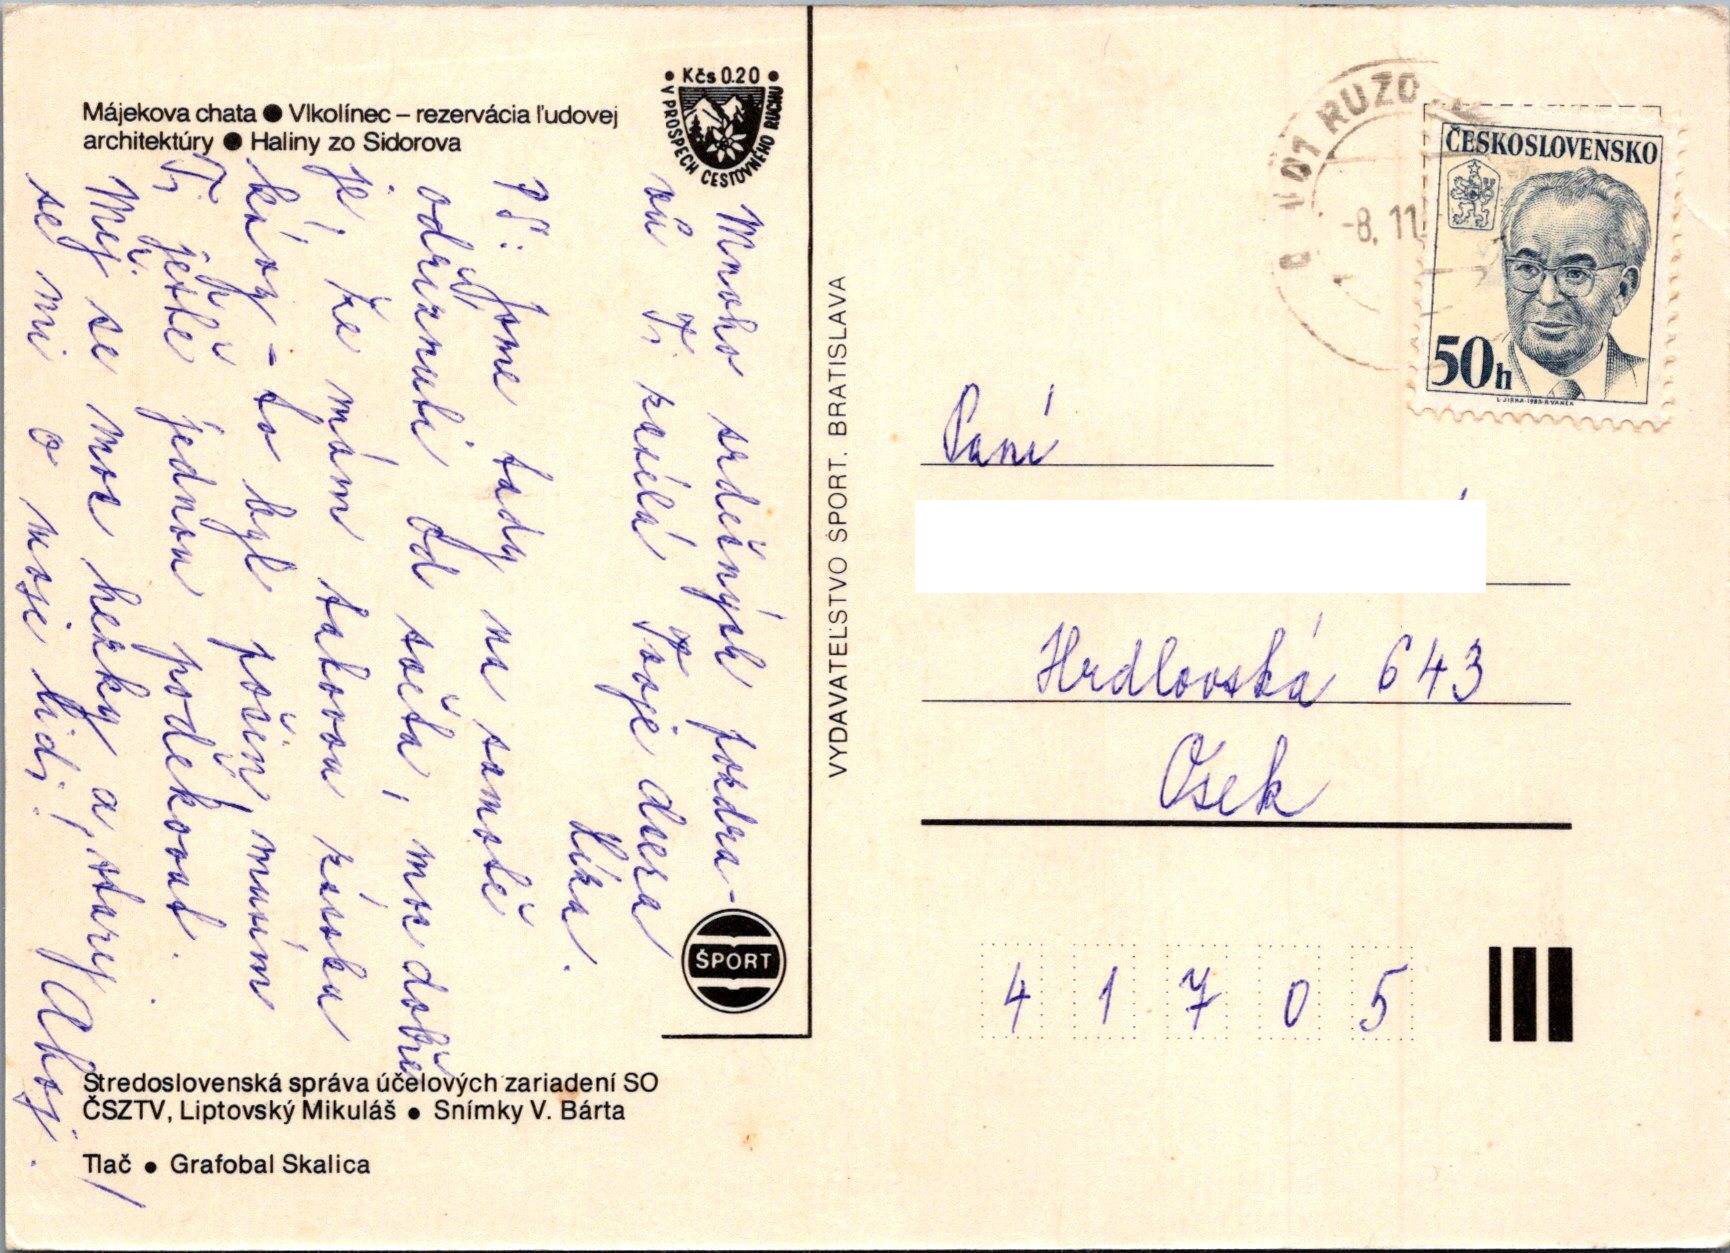 Májekova chata ● Vlkolínec – rezervácia ľudovej
architektúry ● Haliny zo Sidorova
• Kčs 0.20 •
V PROSPECH CESTOVNÉHO RUCHU
Mnoho srdečných pozdra-
vů Ti zasílá Tvoje dcera
Líza.
PS: Jsme tady na samotě
odříznuti od světa, moc dobře
je, že mám takovou zásobu
kávy - to byl počin, musím
Ti ještě jednou poděkovat.
Měj se moc hezky a, starej
se mi o naše lidi! Ahoj!
ŠPORT
Stredoslovenská správa účelových zariadení SO
ČSZTV, Liptovský Mikuláš ● Snímky V. Bárta
Tlač ● Grafobal Skalica
VYDAVATEĽSTVO ŠPORT. BRATISLAVA
01 RUZO
-8. 11
ČESKOSLOVENSKO
50h
L. JIRKA-1983-R. VANĚK
Paní
Hrdlovská 643
Osek
41705